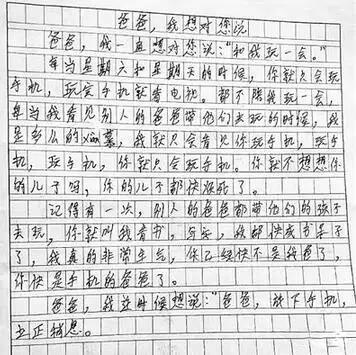 爸爸，我想对您说
爸爸，我一直想对您说："和我玩一会。"
每当星期六和星期天的时候，你就只会玩
手机，玩完手机就看电视。都不陪我玩一会，
每当我看见别人的爸爸带他们去玩的时候，我
是多么的xiàn慕，我就只会看见你玩手机，玩手
机，玩手机，你就只会玩手机。你就不想想你
的儿子吗，你的儿子都快疯死了。
记得有一次，别人的爸爸都带他们的孩子
去玩，你就叫我看书，写字，我都快成书呆子
了，我真的非常生气，你已经快不是我爸了，
你快是手机的爸爸了。
爸爸，我这时候想说："爸爸，放下手机，
立正稍息。